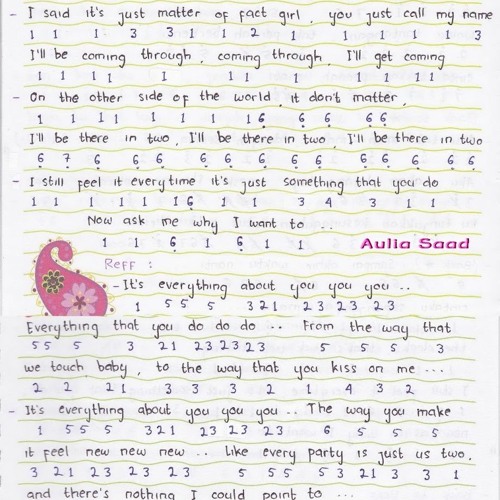 - I said it's just matter of fact girl, you just call my name
1 1 1 3 3 1 2 1 1 1 3
I'll be coming through, coming through, I'll get coming
1 1 1 1 1 1 1 1 1 1 1 1
- On the other side of the world, it don't matter,
1 1 1 1 1 1 1 1 6 6 6 6 6
I'll be there in two, I'll be there in two, I'll be there in two
6 7 6 6 6 6 6 6 6 6 6 6 6 6 6
- I still feel it everytime it's just something that you do
1 1 1 1 1 1 1 6 1 1 3 4 3 1 1
Now ask me why I want to ...
1 1 6 1 6 1 1
Aulia Saad
Reff :
- It's everything about you you you ..
1 5 5 5 3 2 1 2 3 2 3 2 3
Everything that you do do do .. From the way that
5 5 5 3 2 1 2 3 2 3 2 3 5 5 5 3
we touch baby, to the way that you kiss on me ...
2 2 2 1 3 3 3 2 1 4 3 2
- It's everything about you you you .. The way you make
1 5 5 5 3 2 1 2 3 2 3 2 3 6 5 5 5
it feel new new new .. Like every party is just us two,
3 2 1 2 3 2 3 2 3 5 5 5 5 3 2 1 3 3 1
and there's nothing I could point to ...